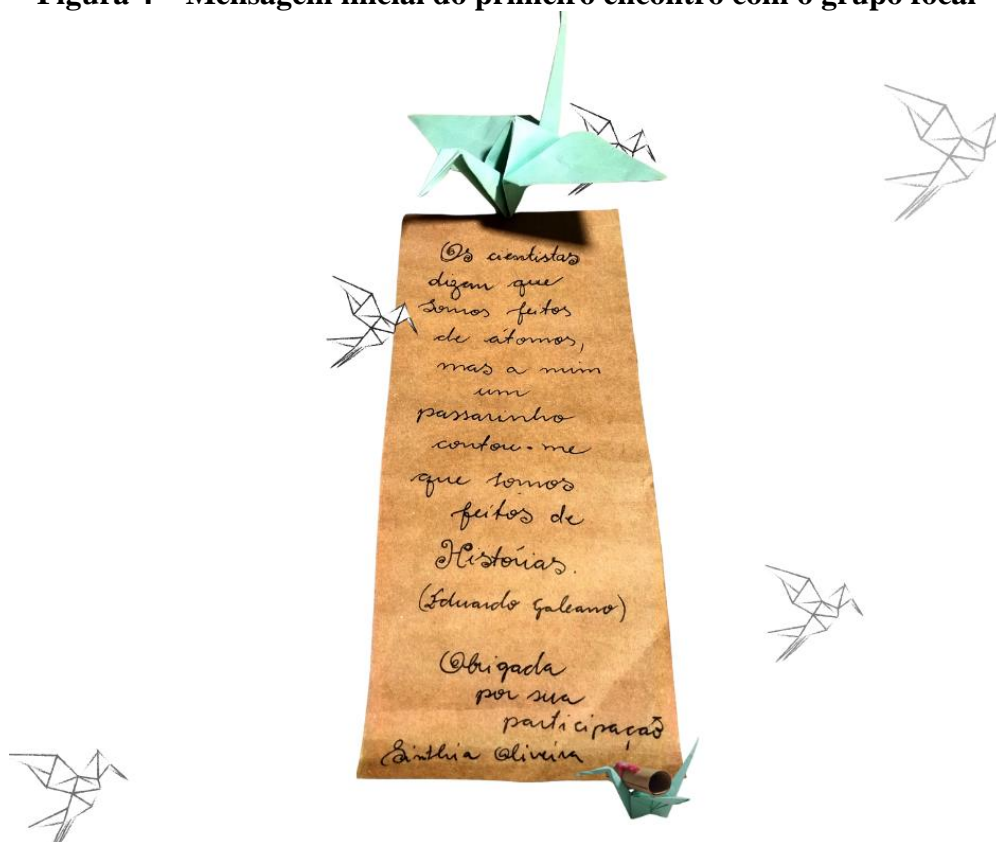 Figura 4 – Mensagem inicial do primeiro encontro com o grupo focal
Os cientistas
dizem que
somos feitos
de átomos,
mas a mim
um
passarinho
contou-me
que somos
feitos de
Histórias.
(Eduardo Galeano)
Obrigada
por sua
participação
Sinthia Oliveira